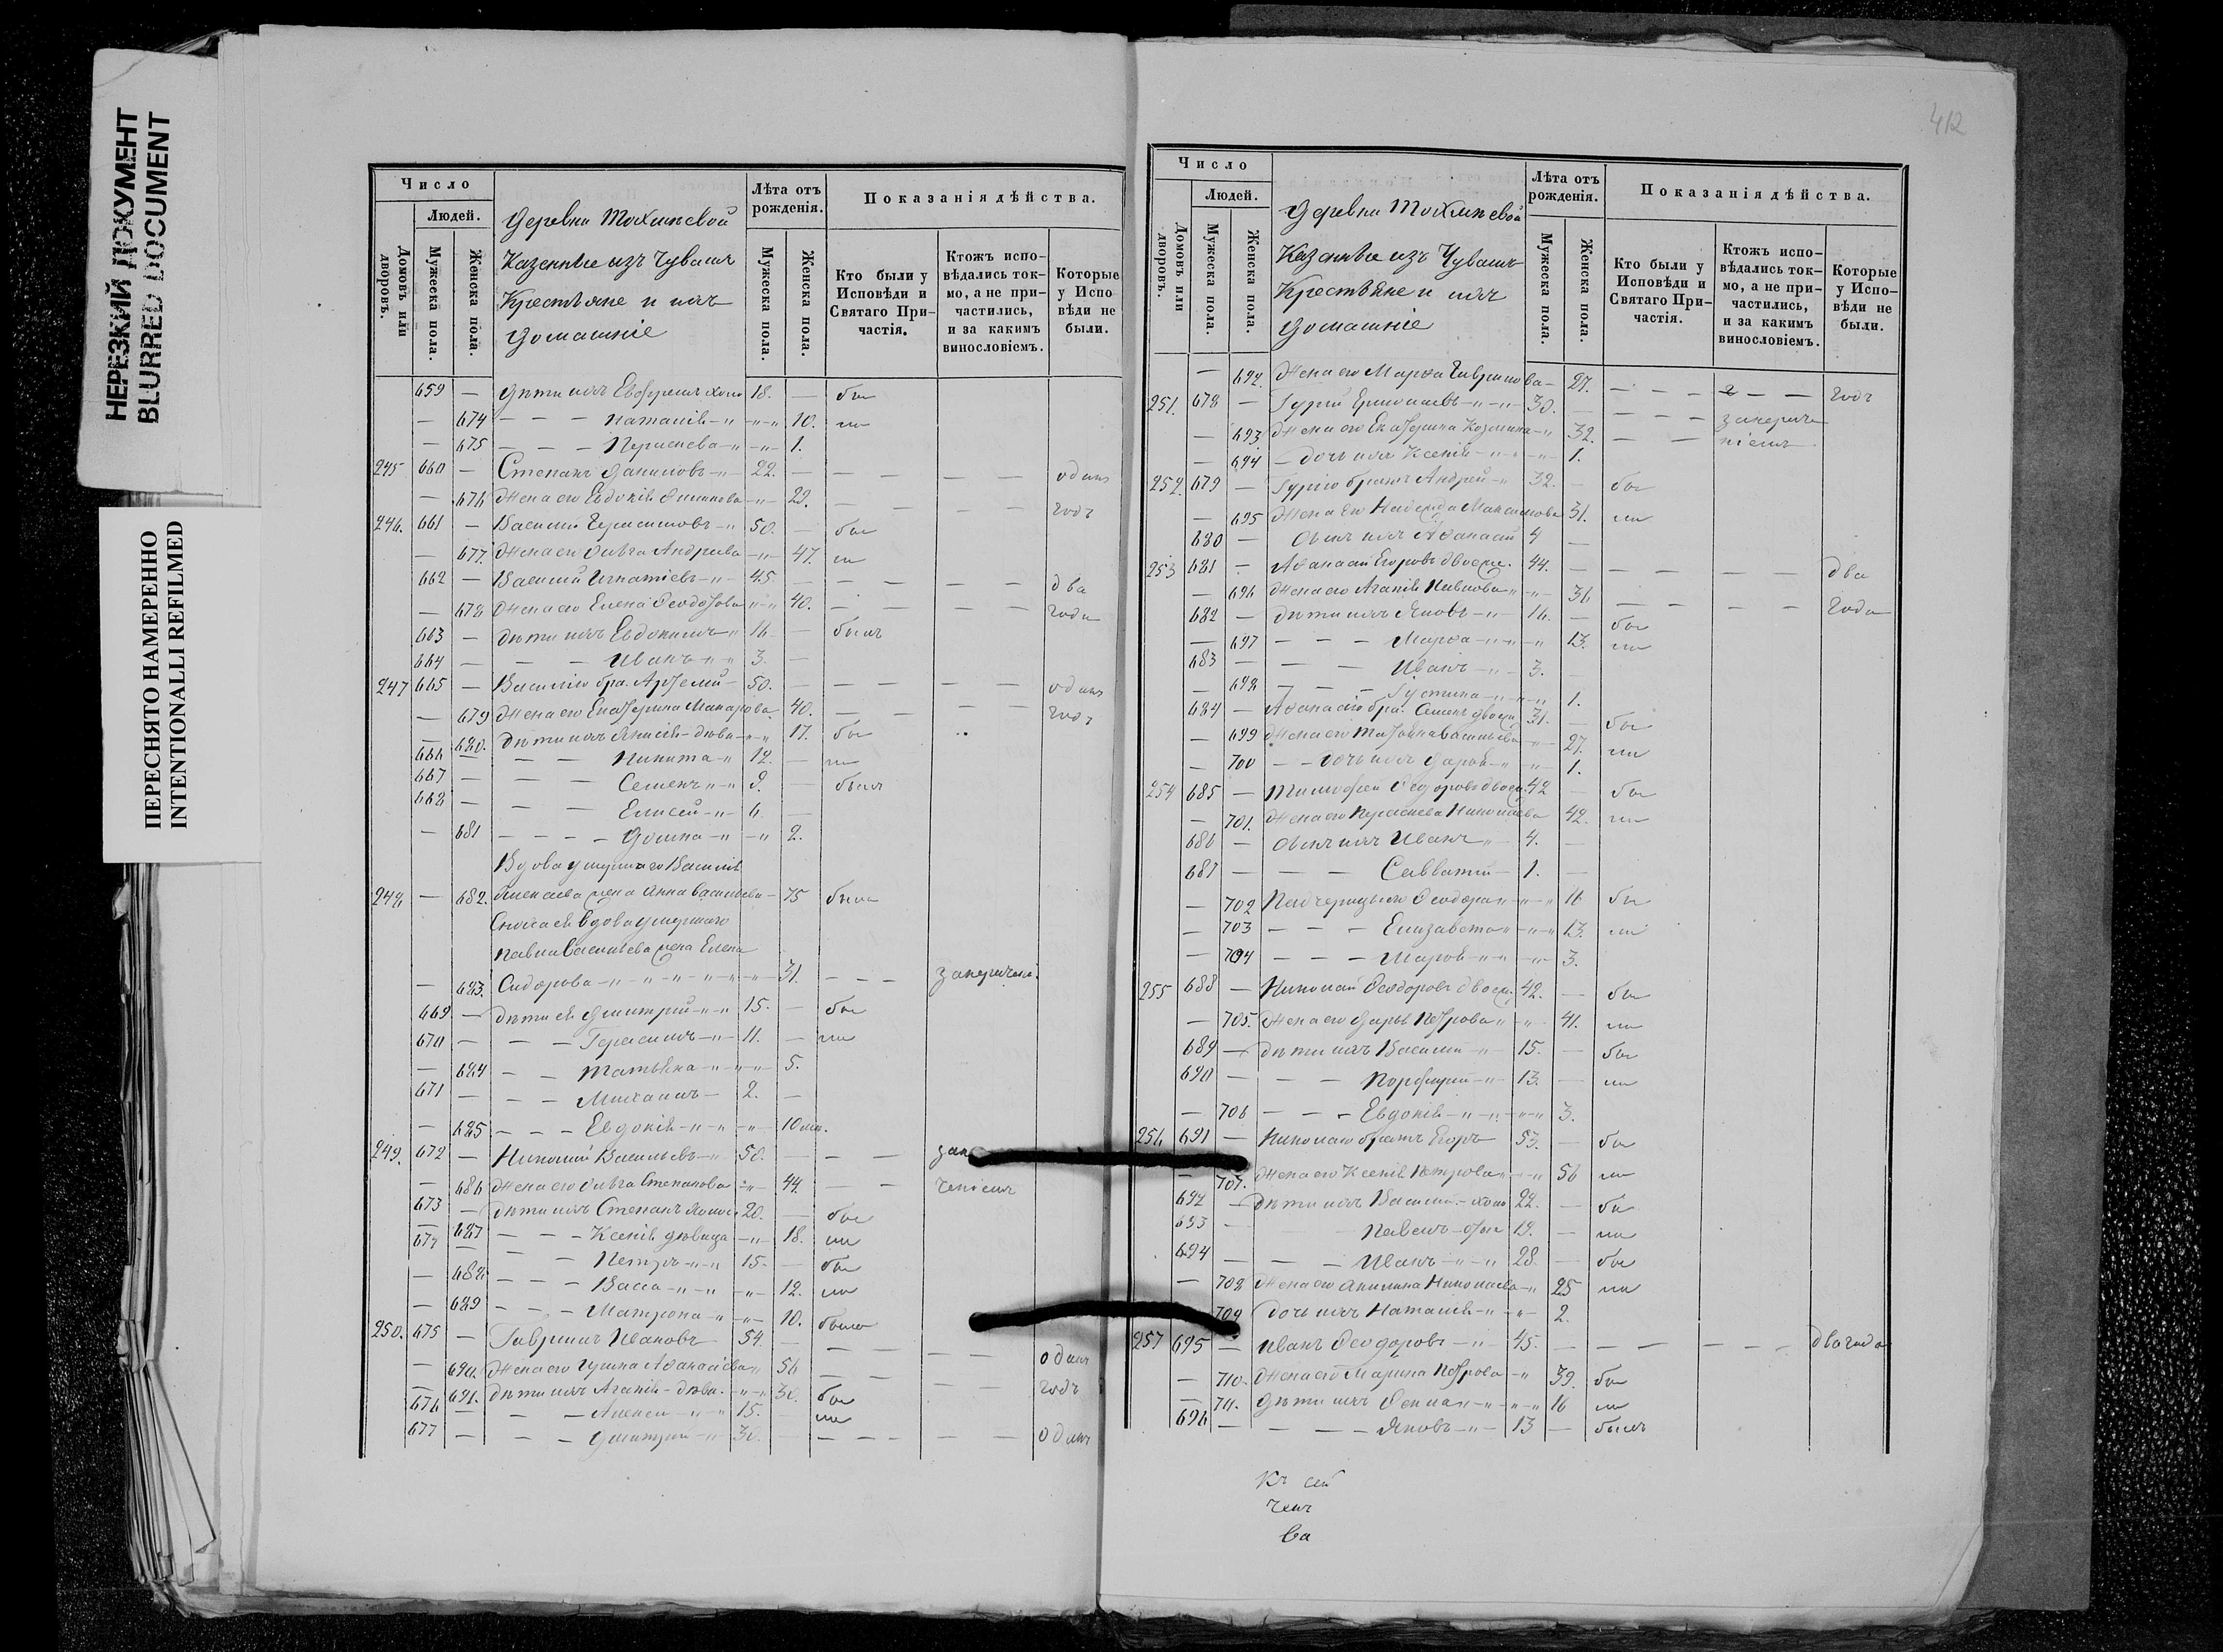 НЕРЕЗКИЙ ДОКУМЕНТ
BLURRED DOCUMENT
ПЕРЕСНЯТО НАМЕРЕННО
INTENTIONALLI REFILMED
Число
Людей.
Домовъ или дворовъ.
Мужеска пола.
Женска пола.
Деревни
Казенные изъ Чувашъ
Крестьяне и ихъ
домашніе
Лѣта отъ рожденія.
Мужеска пола.
Женска пола.
Показанія дѣйства.
Кто были у Исповѣди и Святаго Причастія.
Ктожъ исповѣдались токмо, а не причастились, и за какимъ винословіемъ.
Которые у Исповѣди не были.
659 — дѣти ихъ 18. —
— 674 — — — Наталія 10.
— 675 — — — 1.
245 660 — Степанъ Даниловъ 22. — — — — одинъ
— 676 Жена его Евдокія 22. — — — годъ
246. 661 — Василій Герасимовъ 50. — бы
— 677. Жена его Ольга Андреева 47. ли
662 — Василій Игнатіевъ 45. — — — — два
— 678 Жена его Елена 40. — — — — года
663 — дѣти ихъ Евдокимъ 16 — былъ
664 — — — Иванъ 3. —
247 665 — Василію бра. Артемій 50. — — — — одинъ
— 679 Жена его Екатерина Макарова 40. — — — — годъ
— 680. дѣти ихъ 17. бы
666 — — — Никита 12. — ли
667 — — — Семенъ 9. — былъ
668 — — — Елисей 6. —
— 681 — — — Домна 2.
Вдова умершаго Василія
248 — 682. жена Анна Васильева 75 была
Сноха ея вдова умершаго
Павла Васильева жена Елена
— 683. Сидорова 31. — — —
669 — дѣти ея Дмитрій 15. — бы
670 — — — Герасимъ 11. — ли
— 684 — — Татьяна 5.
671 — — — Михаилъ 2. —
— 685 — — — Евдокія 10 
249. 672 — Николай Васильевъ 50. — — —
— 686 Жена его Ольга Степанова 44. — —
673 — дѣти ихъ Степанъ 20. — бы
— 687 — — — Ксенія дѣвица 18. ли
674 — — — Петръ 15. — бы
— 688 — — — Васса 12. ли
— 689 — — — Матрона 10. была
250. 675 — Гавриилъ Ивановъ 54. — — — — одинъ
— 690. Жена его 56 — — — — годъ
— 691. дѣти ихъ Агапія 30. бы
676 — — — Алексѣй 15. — ли
677 — — — Дмитрій 30. — — — — одинъ
412
Число
Людей.
Домовъ или дворовъ.
Мужеска пола.
Женска пола.
Деревни
Казенные изъ Чувашъ
Крестьяне и ихъ
домашніе
Лѣта отъ рожденія.
Мужеска пола.
Женска пола.
Показанія дѣйства.
Кто были у Исповѣди и Святаго Причастія.
Ктожъ исповѣдались токмо, а не причастились, и за какимъ винословіемъ.
Которые у Исповѣди не были.
— 692. Жена его Марѳа Гаврилова 27. — — — — годъ
251. 678 — Гурій 30. — — —
— 693 Жена его Екатерина Козмина 32. — —
— 694 — дочь ихъ Ксенія 1.
252. 679 — Гурію братъ Андрей 32. — бы
— 695 Жена его Надежда Максимова 31. ли
680 — сынъ ихъ Аѳанасій 4 —
253 681 — Аѳанасій Егоровъ 44. — — — — два
— 696 Жена его Агапія Павлова 36 — — — — года
682 — дѣти ихъ Яковъ 16. — бы
— 697 — — — Марѳа 13. ли
683 — — — Иванъ 3. —
— 698 — — — Густина 1.
684 — Аѳанасію бра. Семенъ 31. — бы
— 699 Жена его Татьяна Васильева 27. ли
— 700 — — дочь ихъ Дарья 1.
254 685 — Тимоѳей Ѳедоровъ 42 — бы
— 701. Жена его Николаева 42. ли
686 — сынъ ихъ Иванъ 4. —
687 — — — Савватій 1. —
— 702 Падчерицы его Ѳеодора 16 бы
— 703 — — — Елизавета 13. ли
— 704 — — — Марія 3.
255 688 — Николай Ѳеодоровъ 42. — бы
— 705. Жена его Дарья Петрова 41. ли
689 — дѣти ихъ Василій 15. — бы
690 — — — Порфирій 13. — ли
— 706 — — — Евдокія 3.
256 691 — Николаю братъ Егоръ 53. — бы
— 707. Жена его Ксенія Петрова 56 ли
692 — дѣти ихъ Василій 22. — бы
693 — Павелъ 19. — ли
694 — — — Иванъ 28. — бы
— 708 Жена его Акилина Николаева 25 ли
709 дочь ихъ Наталія 2.
257 695 — Иванъ Ѳеодоровъ 45. — — — — два года
— 710. Жена его Марина Петрова 39. бы
— 711. дѣти ихъ Ѳекла 16 ли
696 — — — Яковъ 13 — былъ
Къ сей